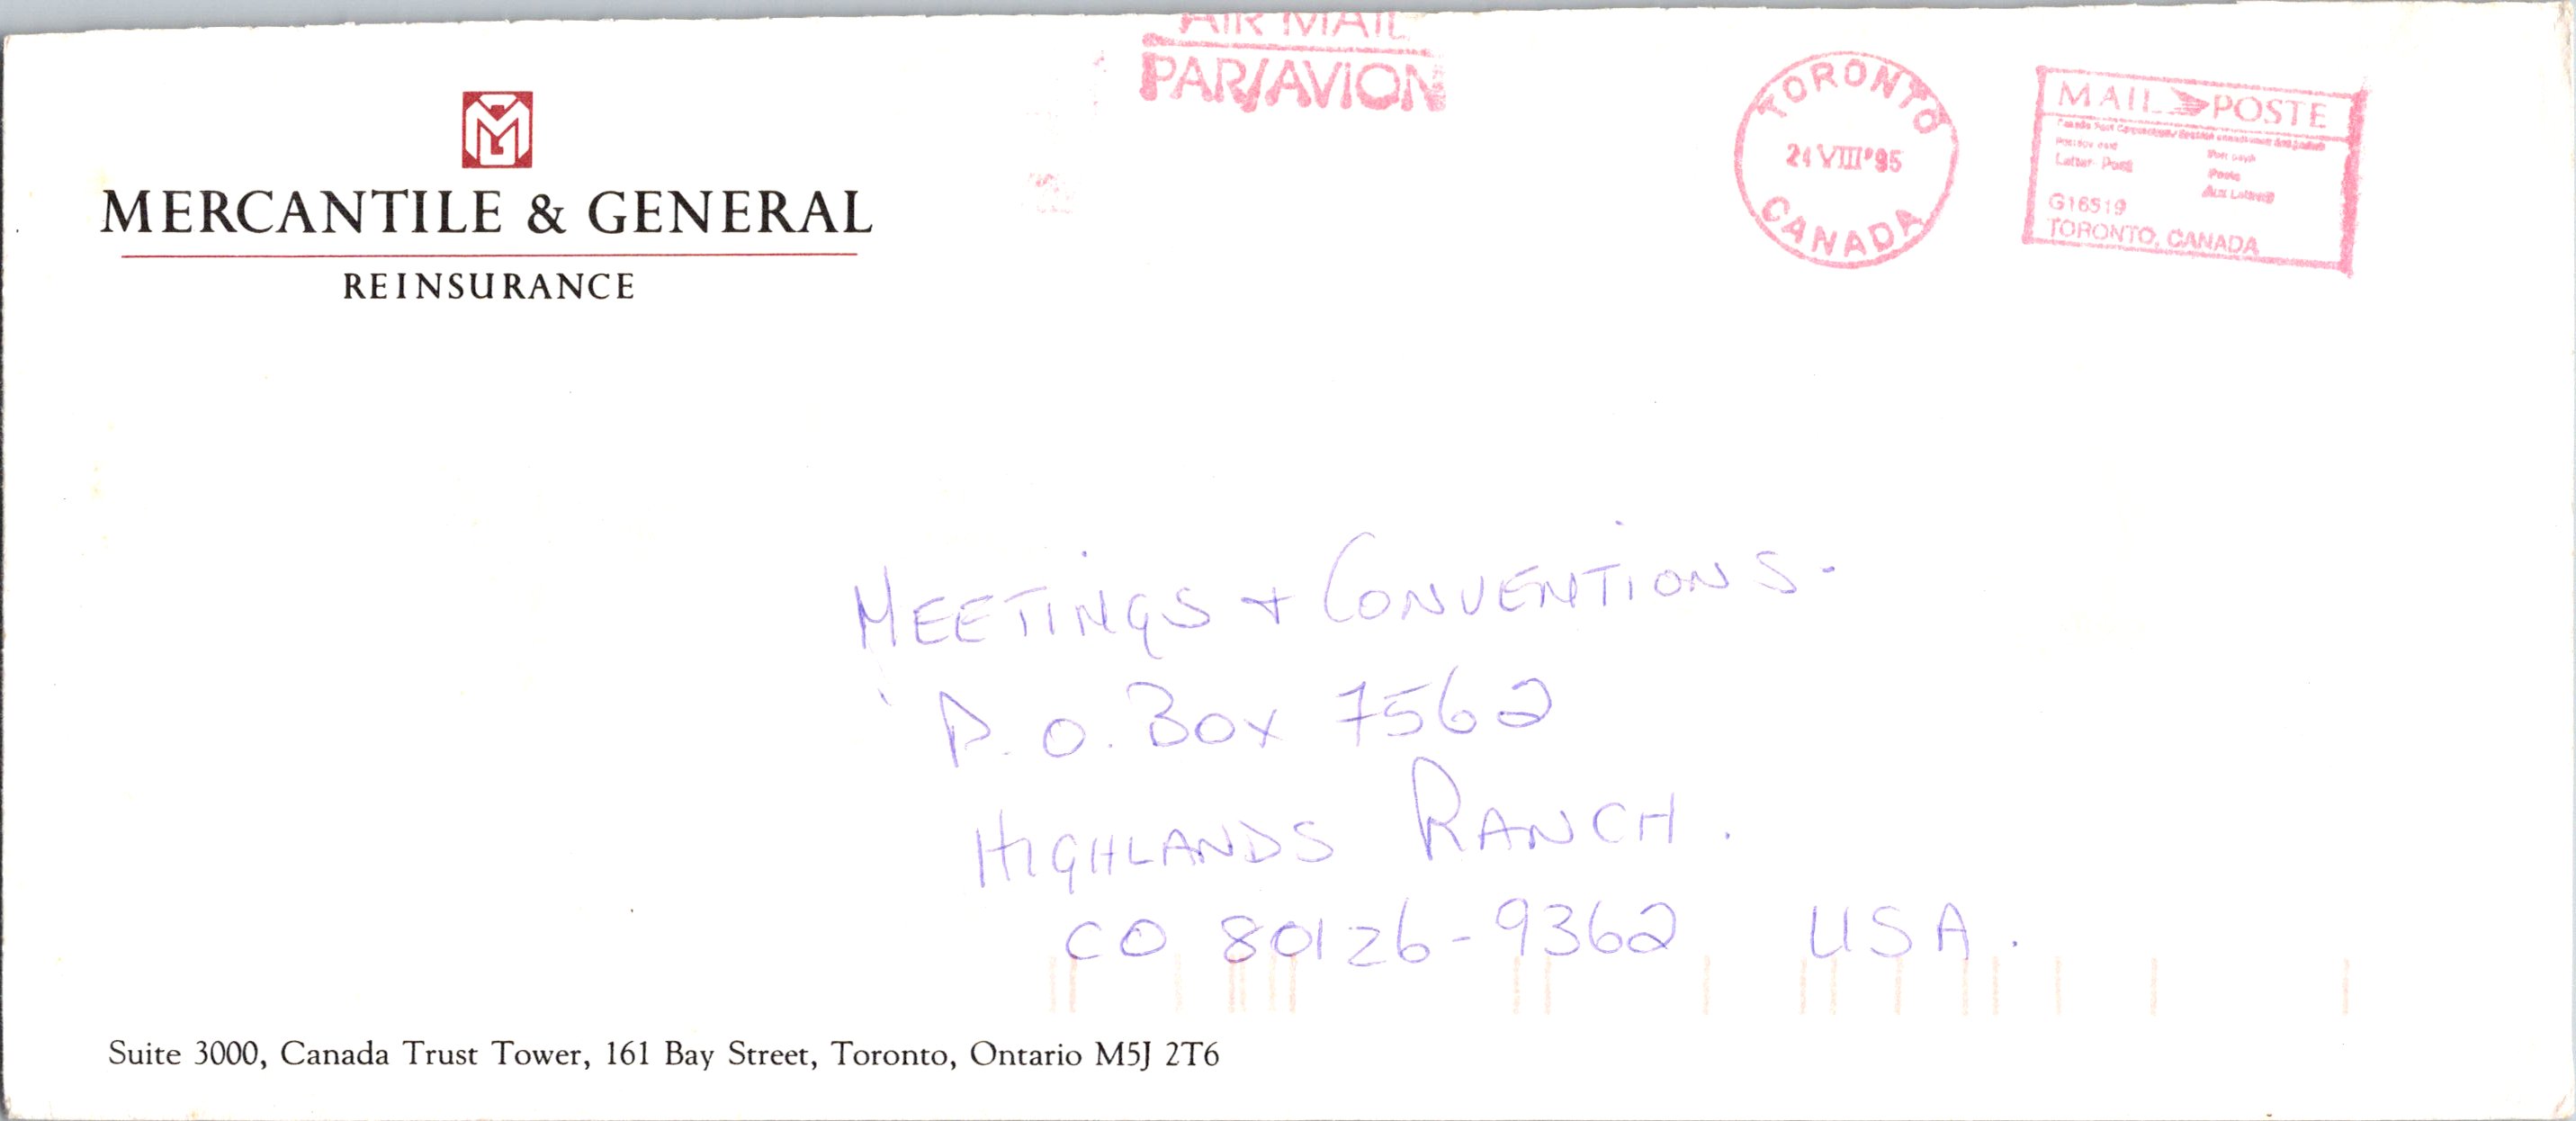 AIR MAIL
PAR/AVION
TORONTO
24 VIII '95
CANADA
MAIL POSTE
Canada Post Corporation / Société canadienne des postes
Postage paid Port payé
Letter-Post Poste
Aux Lettres
G16519
TORONTO, CANADA
MG
MERCANTILE & GENERAL
REINSURANCE
MEETINGS + CONVENTIONS.
P.O. BOX 7562
HIGHLANDS RANCH.
CO 80126-9362 USA.
Suite 3000, Canada Trust Tower, 161 Bay Street, Toronto, Ontario M5J 2T6